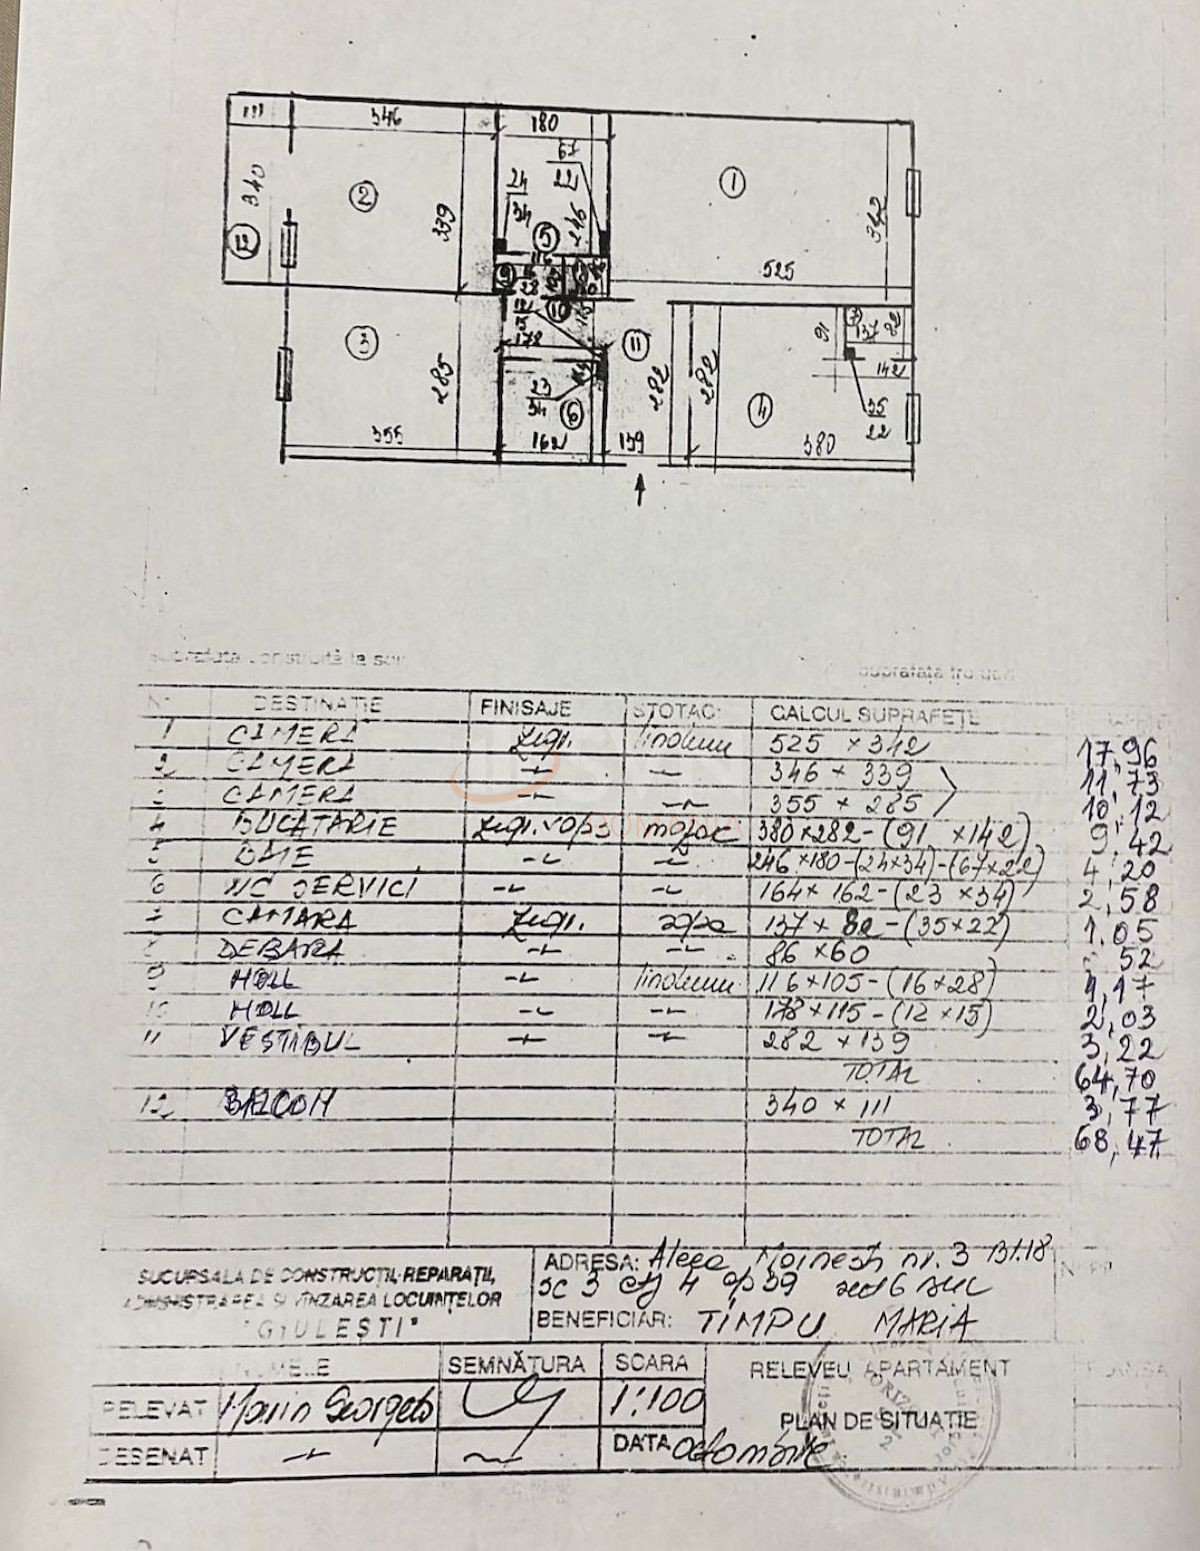 111 346 180
67
22
340 2 24
34 1
339 246 342
E 5
116 525
9
28
10
12
15 115
3 178 11 7
137 82
91
142
285 282 282
23
34 4 35
22
6
355 162 139 380
suprafața construită la sol
suprafața
Nr. DESTINAȚIE FINISAJE STOTAC: CALCUL SUPRAFEȚE
1 CAMERA zugr. linoleum 525 x 342 17,96
2 CAMERA -"- -"- 346 x 339 11,73
3 CAMERA -"- -"- 355 x 285 10,12
4 BUCATARIE zugr. vops mozaic 380 x 282 - (91 x 142) 9,42
5 BAIE -"- -"- 246 x 180 - (24x34) - (67x22) 4,20
6 WC SERVICI -"- -"- 164 x 162 - (23 x 34) 2,58
7 CAMARA zugr. 137 x 82 - (35x22) 1.05
8 DEBARA -"- -"- 86 x 60 52
9 HOLL -"- linoleum 116 x 105 - (16 x 28) 1,17
10 HOLL -"- -"- 178 x 115 - (12 x 15) 2,03
11 VESTIBUL -"- -"- 282 x 139 3,22
TOTAL 64,70
12 BALCON 340 x 111 3,77
TOTAL 68,47
SUCURSALA DE CONSTRUCȚII, REPARAȚII,
ADMINISTRAREA ȘI VINZAREA LOCUINȚELOR
"GIULEȘTI"
ADRESA: Aleea Moinesti nr. 3 Bl.18
sc 3 etj 4 ap 39 sect 6 Buc
BENEFICIAR: TIMPU MARIA
NUMELE SEMNĂTURA SCARA RELEVEU APARTAMENT
RELEVAT Marin Georgeta 1:100
PLAN DE SITUAȚIE
DESENAT -"- DATA octombrie